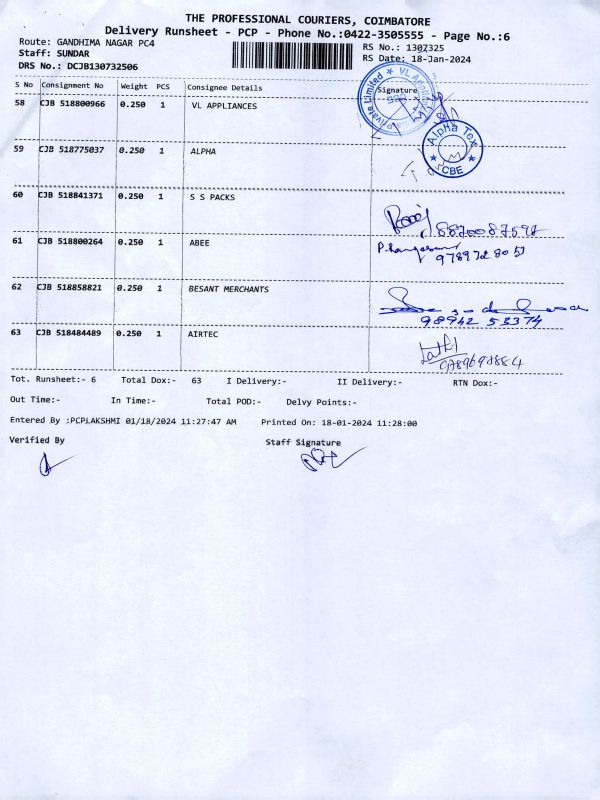 THE PROFESSIONAL COURIERS, COIMBATORE
Delivery Runsheet - PCP - Phone No.:0422-3505555 - Page No.:6
Route: GANDHIMA NAGAR PC4 RS No.: 1307325
Staff: SUNDAR RS Date: 18-Jan-2024
DRS No.: DCJB130732506
S No Consignment No Weight PCS Consignee Details Signature
58 CJB 518800966 0.250 1 VL APPLIANCES
Private Limited ★ VL
59 CJB 518775037 0.250 1 ALPHA
Alpha Tex ★ CBE ★
60 CJB 518841371 0.250 1 S S PACKS
61 CJB 518800264 0.250 1 ABEE
62 CJB 518858821 0.250 1 BESANT MERCHANTS
98942 53374
63 CJB 518484489 0.250 1 AIRTEC
Tot. Runsheet:- 6 Total Dox:- 63 I Delivery:- II Delivery:- RTN Dox:-
Out Time:- In Time:- Total POD:- Delvy Points:-
Entered By :PCPLAKSHMI 01/18/2024 11:27:47 AM Printed On: 18-01-2024 11:28:00
Verified By Staff Signature